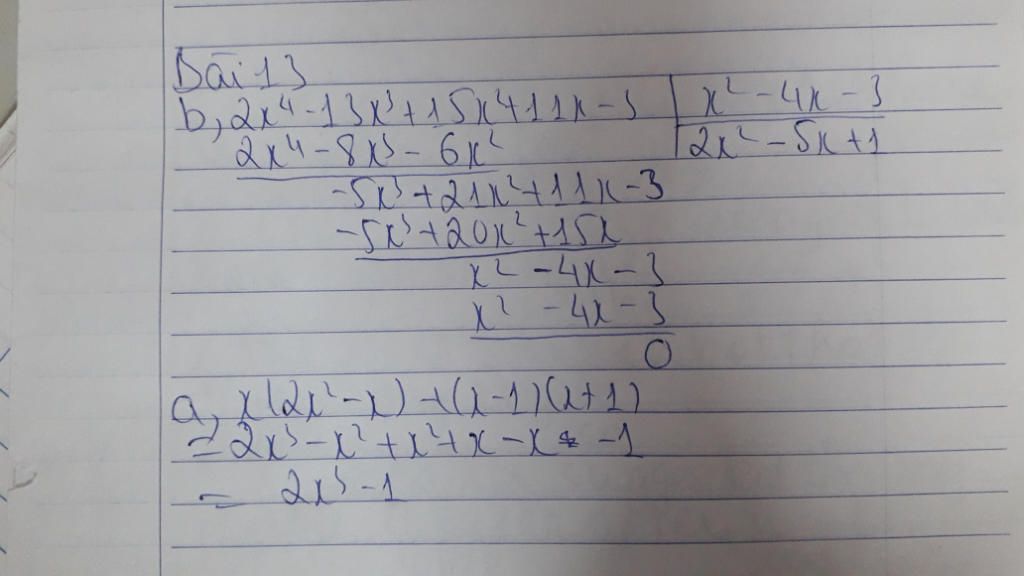 Bài 13
b, 2x⁴ - 13x³ + 15x² + 11x - 3 | x² - 4x - 3
2x⁴ - 8x³ - 6x² | 2x² - 5x + 1
-5x³ + 21x² + 11x - 3
-5x³ + 20x² + 15x
x² - 4x - 3
x² - 4x - 3
0
a, x(2x² - x) + (x - 1)(x + 1)
= 2x³ - x² + x² + x - x - 1
= 2x³ - 1